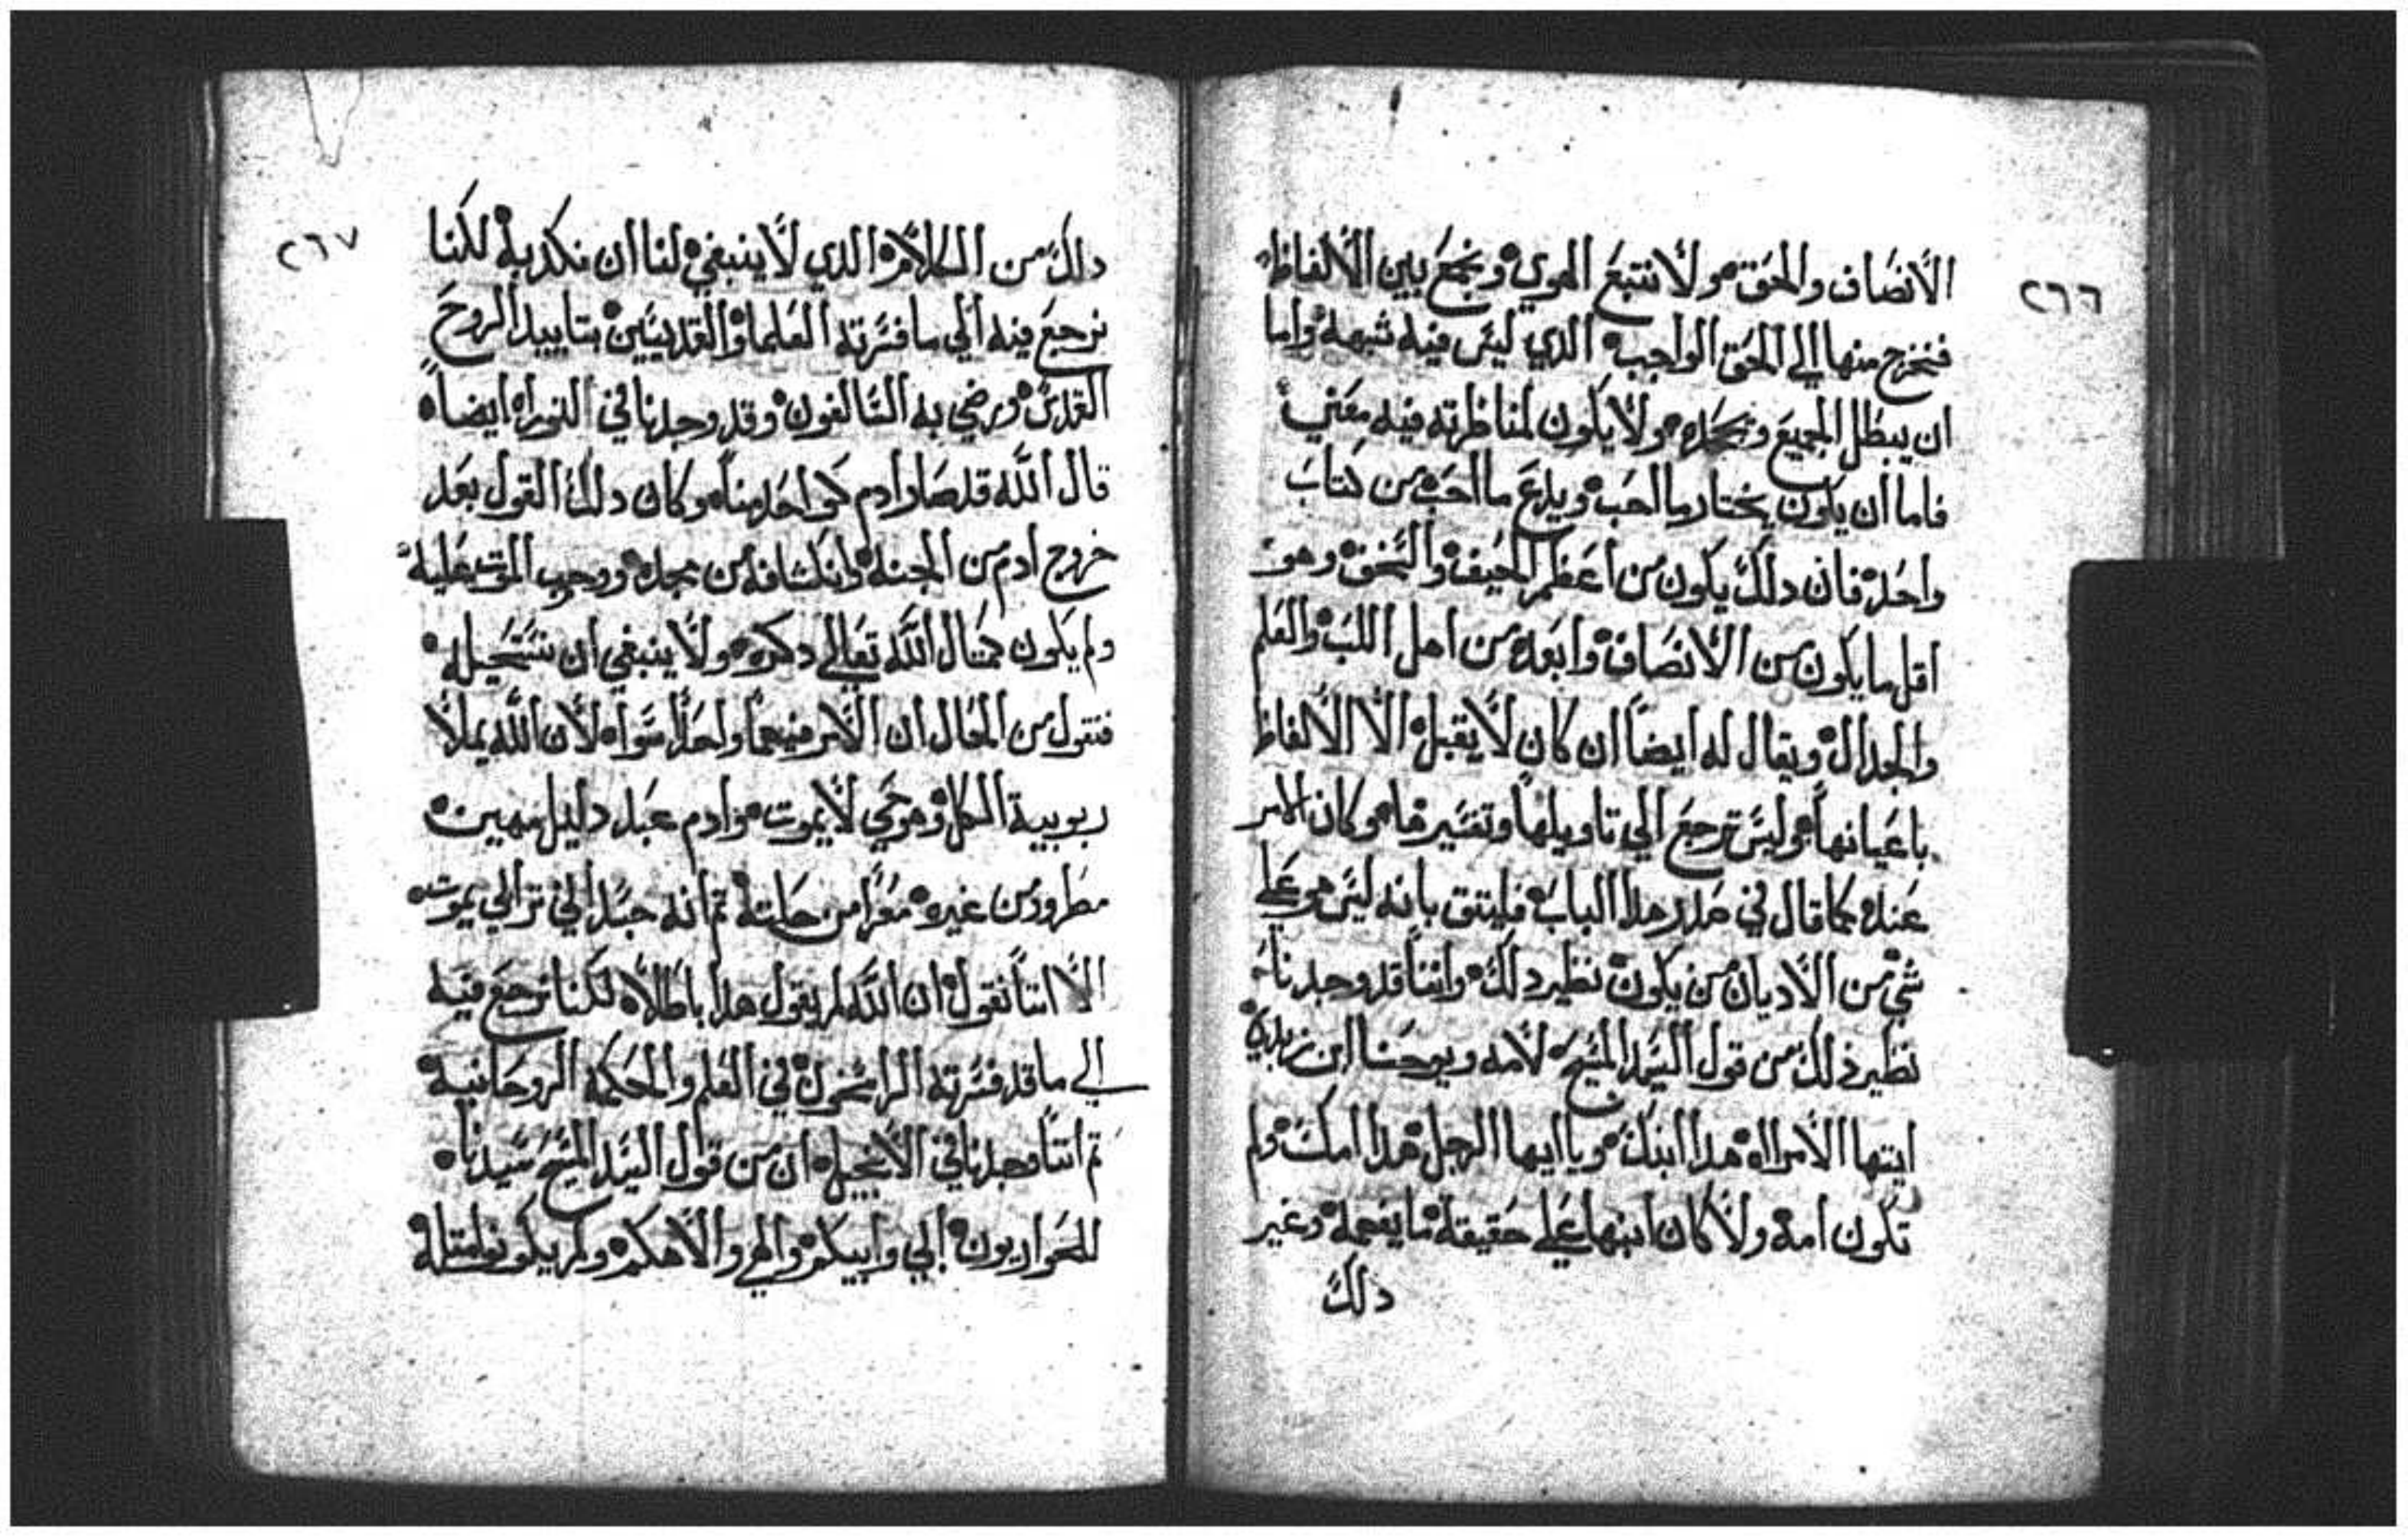 ٢٦٦
الانصاف والحق ولا نتبع الهوي ونجمع بين الالفاظ
فنخرج منها الي الحق الواجب الدي ليس فيه شبهه واما
ان يبطل الجميع ونجحده ولا يكون لمناظرته فيه معني
فاما ان يكون يختار ما احب ويدع ما احب من كتاب
واحد فان دلك يكون من اعظم الحيف والسخف وهو
اقل ما يكون من الانصاف وابعده من اهل اللب والعلم
والجدال ويقال له ايضاً ان كان لا يقبل الا الالفاظ
باعيانها وليس ترجع الي تاويلها وتفسيرها وكان الامر
عنده كما قال في هدا الباب فليتق بانه ليس هو علي
شي من الاديان من يكون نظير دلك واننا قد وجدنا
نظير ذلك من قول السيد المسيح لامه ويوحنا ابن زبدي
ايتها الامراه هدا ابنك ويا ايها الرجل هدا امك ولم
تكون امه ولا كان ابنها علي حقيقة ما يفهمه وغير
دلك
٢٦٧
دلك من الكلام الدي لا ينبغي لنا ان نكدب به لكنا
نرجع فيه الي ما فسرته العلما والقديسين بتاييد الروح
القدس ورضي به السالفون وقد وجدنا في التوراه ايضاً
قال الله قد صار ادم كواحد منا وكان دلك القول بعد
خروج ادم من الجنة وانكشافه من مجده ووجوب الموت عليه
ولم يكون كمتال الله تعالي دكره ولا ينبغي ان نستحيله
فنقول من المقال ان الامر فيهما واحداً سواه لان الله يملا
ربوبية الكل وهو حي لا يموت وادم عبد دليل مهين
مطرود من غيره معرا من حلته تم انه جسداني ترابي يموت
الا اننا نقول ان الله لم يقول هدا باطلا لكنا نرجع فيه
الي ما قد فسرته الراسخون في العلم والحكمه الروحانيه
تم اننا وجدنا في الانجيل ان من قول السيد المسيح سيدنا
للحواريون ابي وابيكم والهي والاهكم ولم يكونوا متله